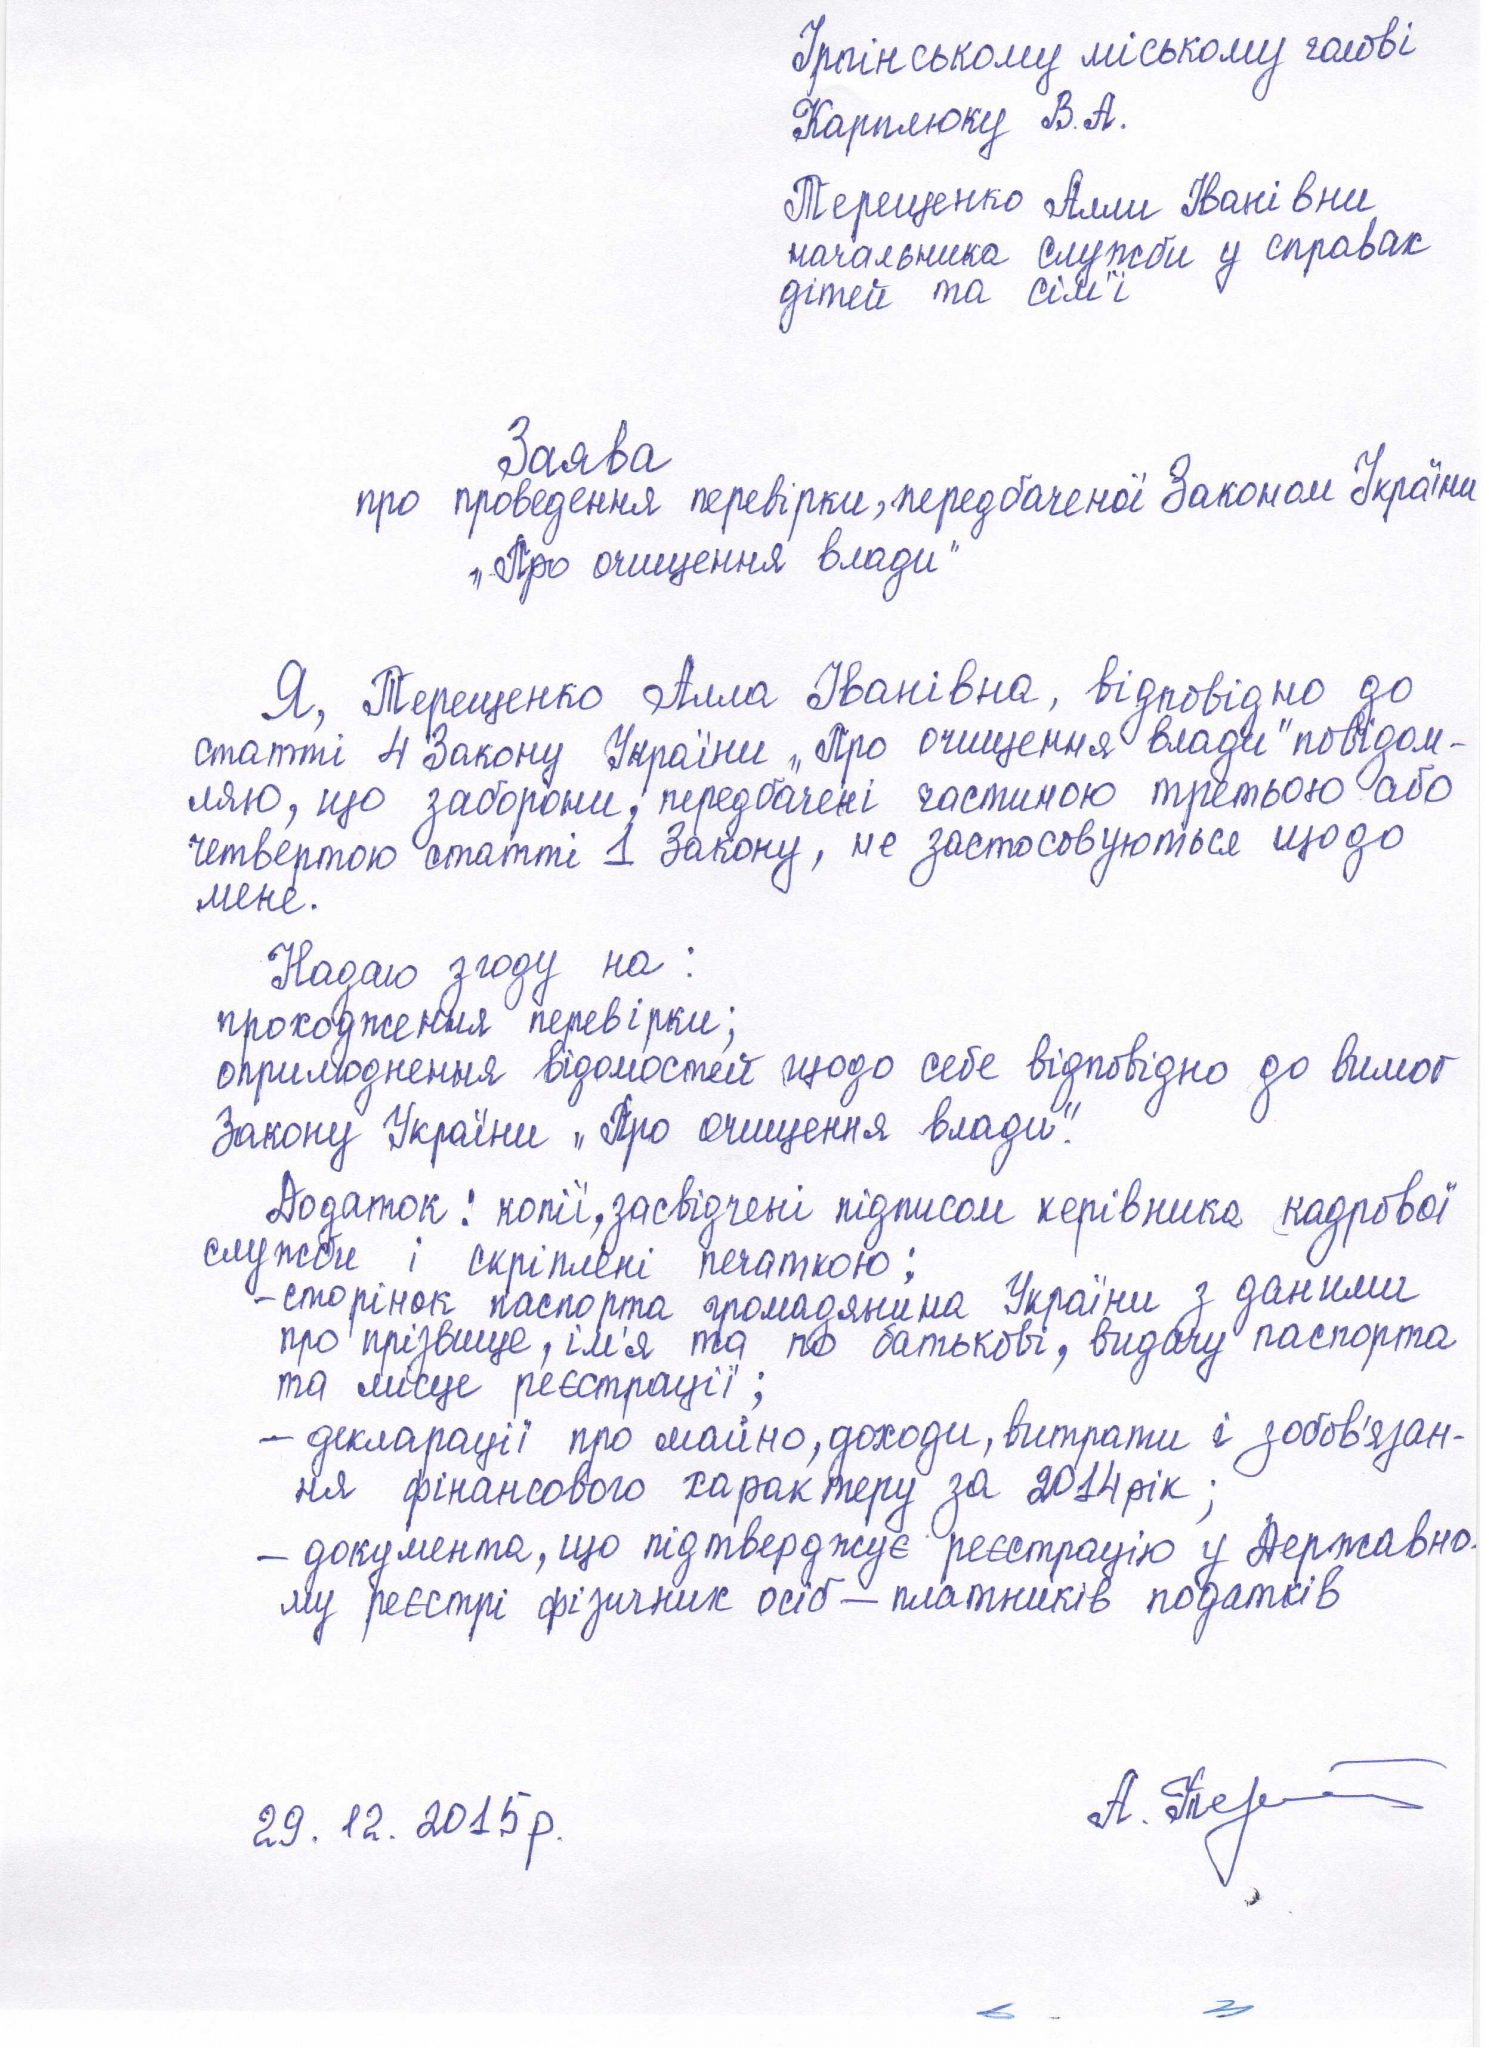 Ірпінському міському голові
Карплюку В.А.
Терещенко Алли Іванівни
начальника служби у справах
дітей та сім'ї
Заява
про проведення перевірки, передбаченої Законом України
„Про очищення влади"
Я, Терещенко Алла Іванівна, відповідно до
статті 4 Закону України „Про очищення влади" повідом-
ляю, що заборони, передбачені частиною третьою або
четвертою статті 1 Закону, не застосовуються щодо
мене.
Надаю згоду на:
проходження перевірки;
оприлюднення відомостей щодо себе відповідно до вимог
Закону України „Про очищення влади".
Додаток: копії, засвідчені підписом керівника кадрової
служби і скріплені печаткою:
- сторінок паспорта громадянина України з даними
про прізвище, ім'я та по батькові, видачу паспорта
та місце реєстрації;
- декларації про майно, доходи, витрати і зобов'язан-
ня фінансового характеру за 2014 рік;
- документа, що підтверджує реєстрацію у Державно-
му реєстрі фізичних осіб – платників податків
29.12.2015р. А.